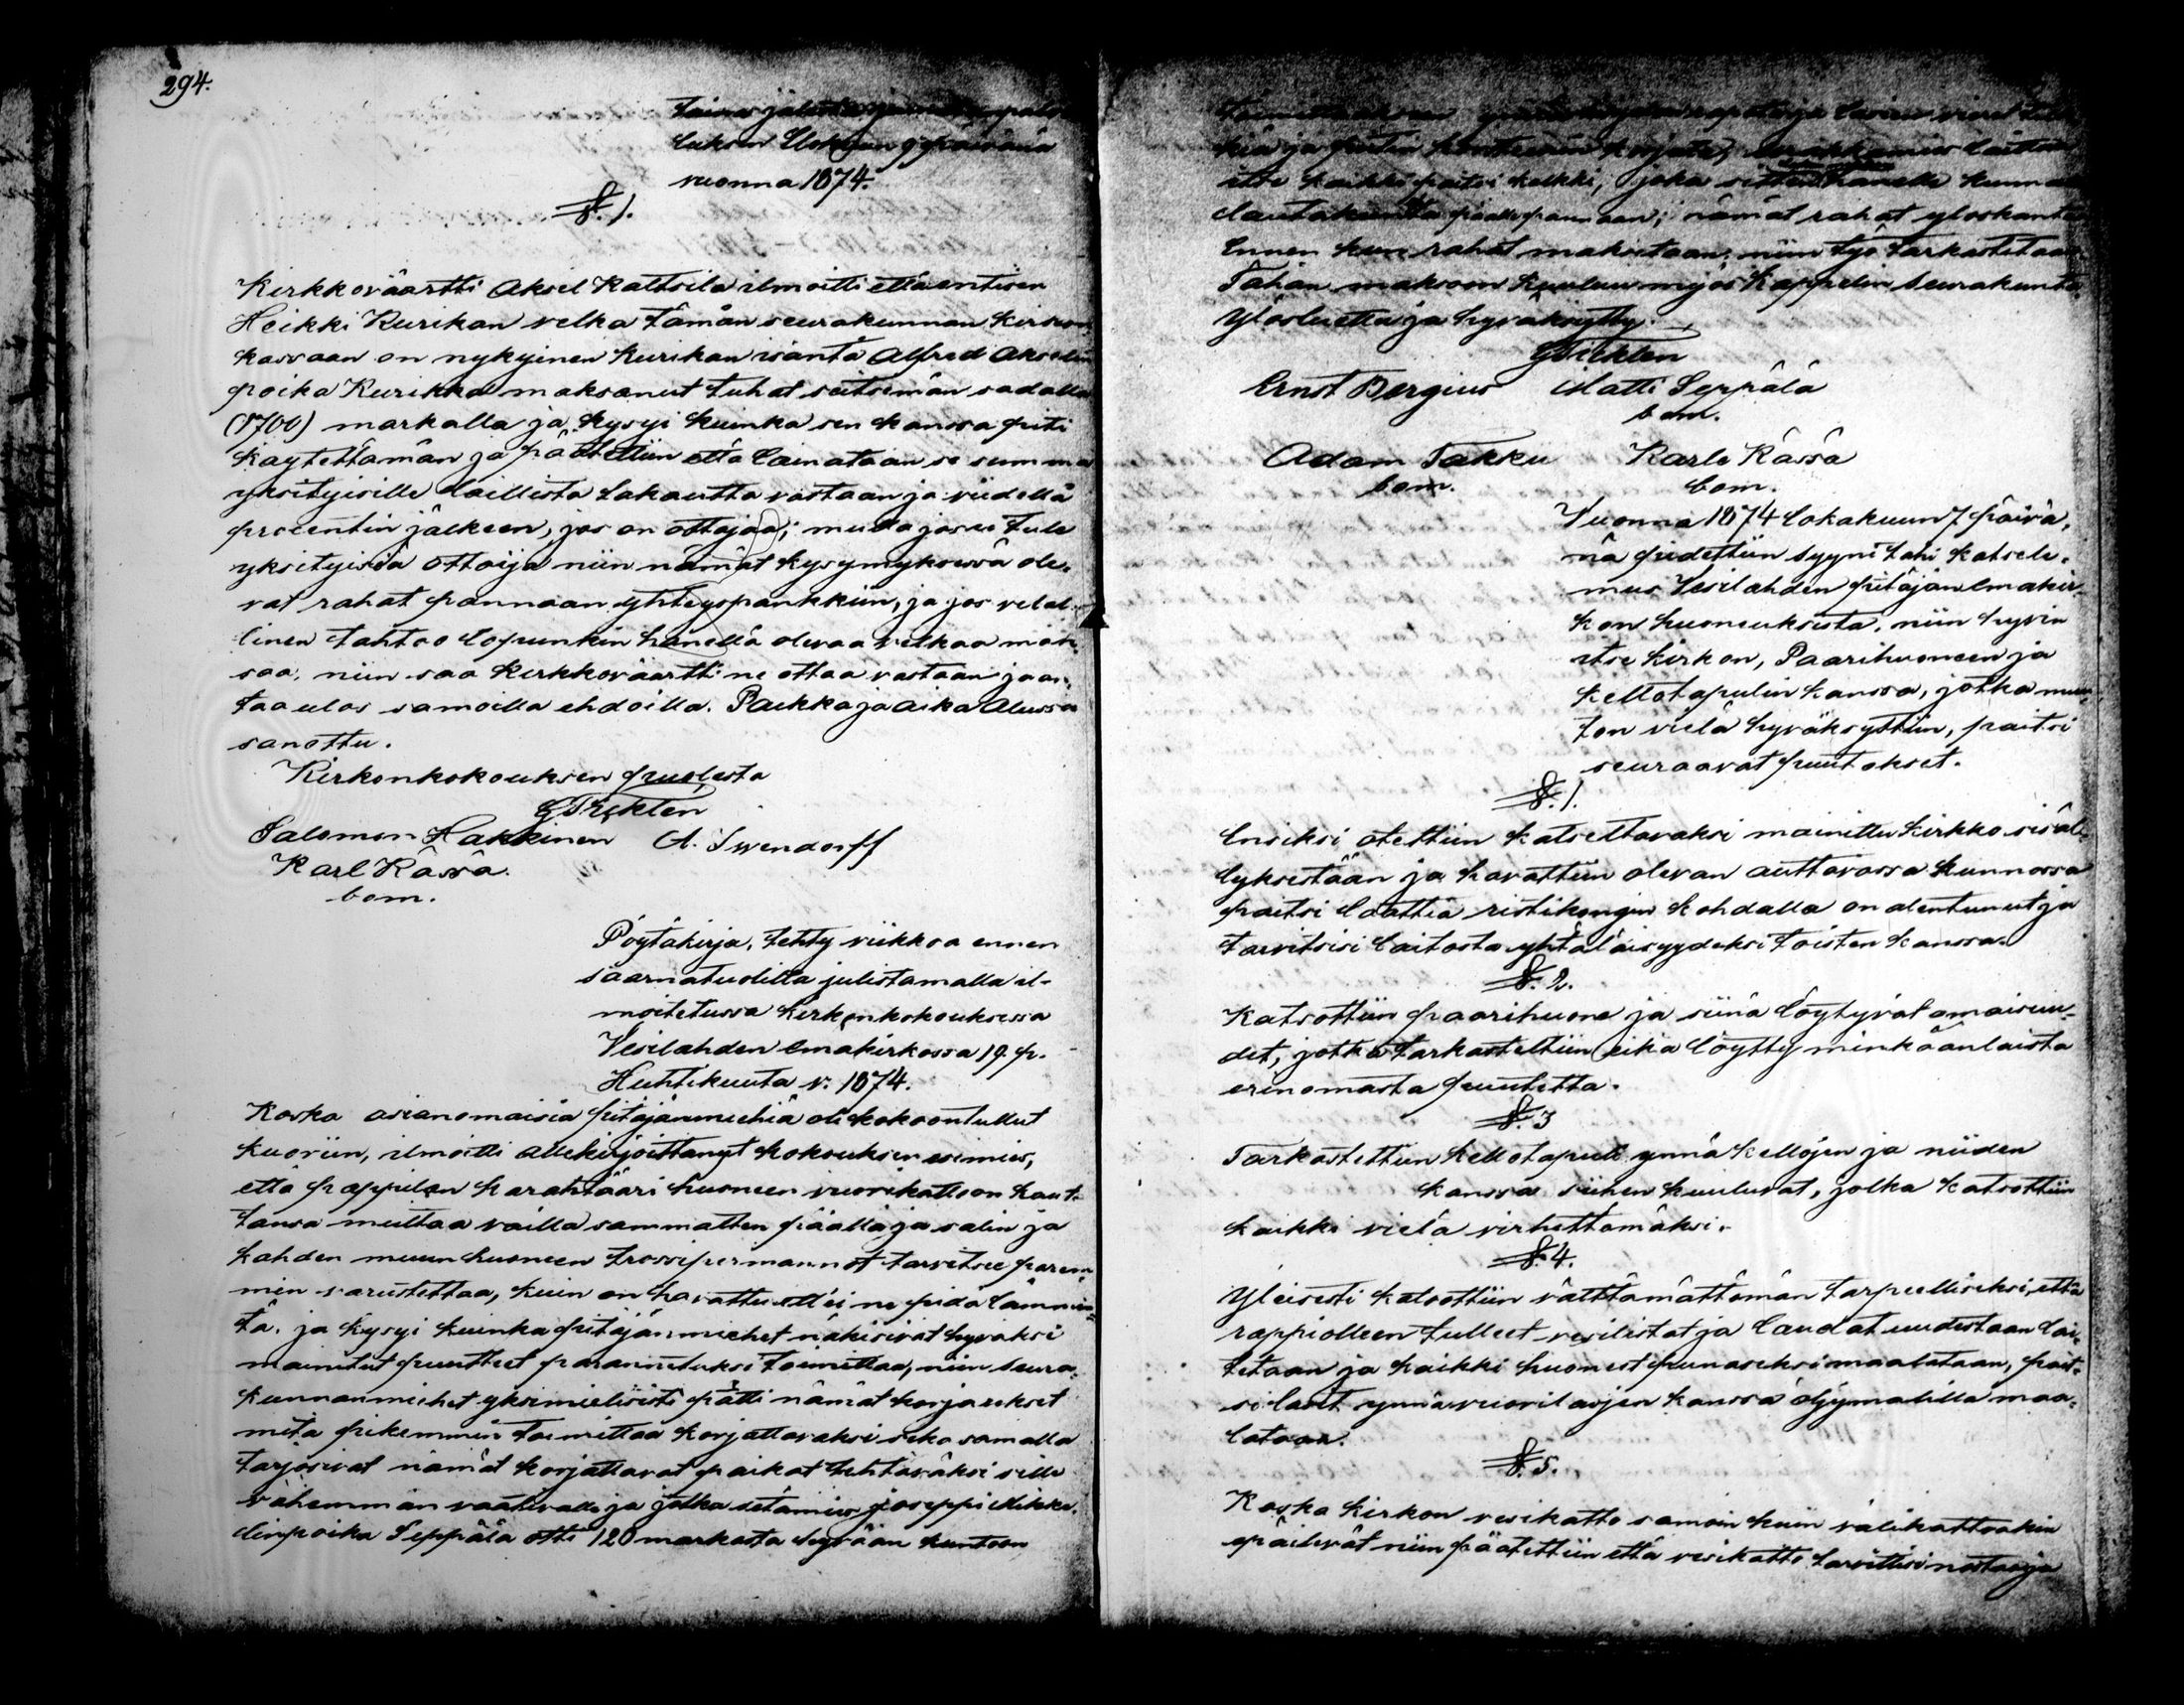 294.
luksen Elokuun 9 päivänä
vuonna 1874.
§. 1.
Kirkkoväärtti Aksel Kaltsila ilmoitti että entisen
Heikki Kurikan velka tämän seurakunnan kirkon
kassaan on nykyinen Kurikan isäntä Alfred Akselin
poika Kurikka maksanut tuhat seitsemän sadalla
(1700) markalla ja kysyi kuinka sen kanssa piti
käytettämän ja päätettiin että lainataan se summa
yksityisille laillista takautta vastaan ja viidellä
procentin jälkeen, jos on ottajaa; mutta jos ei tule
yksityisiä ottaija niin nämät kysymyksessä ole-
vat rahat pannaan yhteyspankkiin, ja jos velal-
linen tahtoo lopunkin hänellä olevaa velkaa mak-
saa, niin saa kirkkoväärtti ne ottaa vastaan ja an-
taa ulos samoilla ehdoilla. Paikka ja aika alussa
sanottu.
Kirkonkokouksen puolesta
Salomon Hakkinen A. Swendorff
Karl Kässä
bom.
Pöytäkirja, tehty viikkoa ennen
saarnatuolilla julistamalla il-
moitetussa kirkonkokouksessa
Vesilahden Emäkirkossa 19 p.
Huhtikuuta v. 1874.
Koska asianomaisia pitäjänmiehiä oli kokoontullut
kuoriin, ilmoitti allekirjoittanut kokouksen esimies,
että pappilan karahtääri huoneen vuorikatto on kaut-
tansa multaa vailla sammalten päällä ja salin ja
kahden muun huoneen trossipermannot tarvitsee parem-
min varustettaa, kuin on havattu ett'ei ne pidä lämmin-
tä, ja kysyi kuinka pitäjänmiehet näkisivät hyväksi
mainitut puutteet parannetuksi toimittaa, niin seura-
kunnanmiehet yksimielisesti päätti nämät korjaukset
mitä pikemmin toimittaa korjattavaksi sekä samalla
tarjosivat nämät korjattavat paikat tehtäväksi sille
vähemmän vaativalle ja jotka setämies Joseppi Mikke-
linpoika Seppälä otti 120 markasta hyvään kuntoon
itse kaikki paitsi kalkki, joka sitten hänelle kunnan
lautakunta päällepannaan; nämät rahat yloskanta
Ennen kun rahat maksetaan, niin työ tarkastetaan
Tähän maksoon kuuluu myös Kappelin seurakunta.
Ylösluettu ja hyväksytty.
Ernst Bergius Matti Seppälä
bom.
Adam Takku Karle Kässä
bom. bom.
Vuonna 1874 Lokakuun 7 päivä-
nä pidettiin syyni tahi katsele-
mus Vesilahden pitäjän Emäkir-
kon huoneuksista, niin hyvin
itse kirkon, Paarihuoneen ja
kellotapulin kanssa, jotka muu-
ton vielä hyväksyttiin, paitsi
seuraavat puutokset.
§. 1.
Ensiksi otettiin katseltavaksi mainittu kirkko sisäl-
lyksestään ja havattiin olevan auttavassa kunnossa
paitsi laattia ristikongin kohdalla on alentunut ja
tarvitsisi laitosta yhtäläisyydeksi toisten kanssa.
§. 2.
Katsottiin paarihuone ja siinä löytyvät omaisuu-
det, jotka tarkasteltiin eikä löytty minkäänlaista
erinomasta puutetta.
§. 3
Tarkastettiin kellotapuli ynnä kellojen ja niiden
kanssa siihen kuuluvat, jotka katsottiin
kaikki vielä virhettömäksi.
§. 4.
Yleisesti katsottiin välttämättömän tarpeelliseksi, että
rappiolleen tulleet vesilistat ja laudat uudestaan lai-
tetaan ja kaikki huoneet punaseksi maalataan, pait-
si laut ynnä vuorilaujen kanssa öljymalilla maa-
lataan.
§. 5.
Koska kirkon vesikatto samoin kuin välikattoakin
epäilevät niin päätettiin että vesikatto tarvittisi nostaa ja